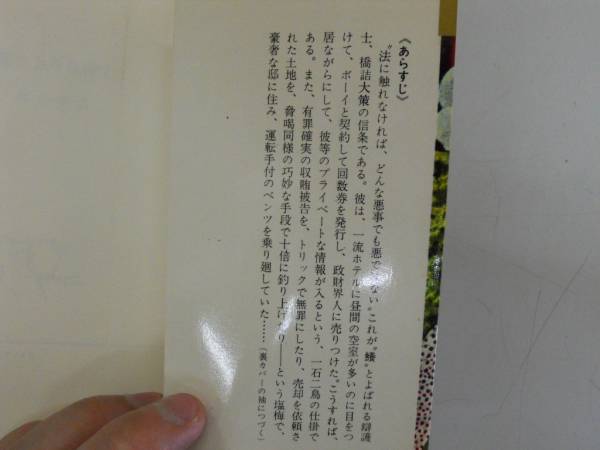 《あらすじ》
〝法に触れなければ、どんな悪事でも悪でない〟これが〝鰻〟とよばれる辯護
士、橋詰大策の信条である。彼は、一流ホテルに昼間の空室が多いのに目をつ
けて、ボーイと契約して回数券を発行し、政財界人に売りつけた。こうすれば、
居ながらにして、彼等のプライベートな情報が入るという、一石二鳥の仕掛で
ある。また、有罪確実の収賄被告を、トリックで無罪にしたり、売却を依頼さ
れた土地を、脅喝同様の巧妙な手段で十倍に釣り上げたり――という塩梅で、
豪奢な邸に住み、運転手付のベンツを乗り廻していた……(裏カバーの袖につづく)